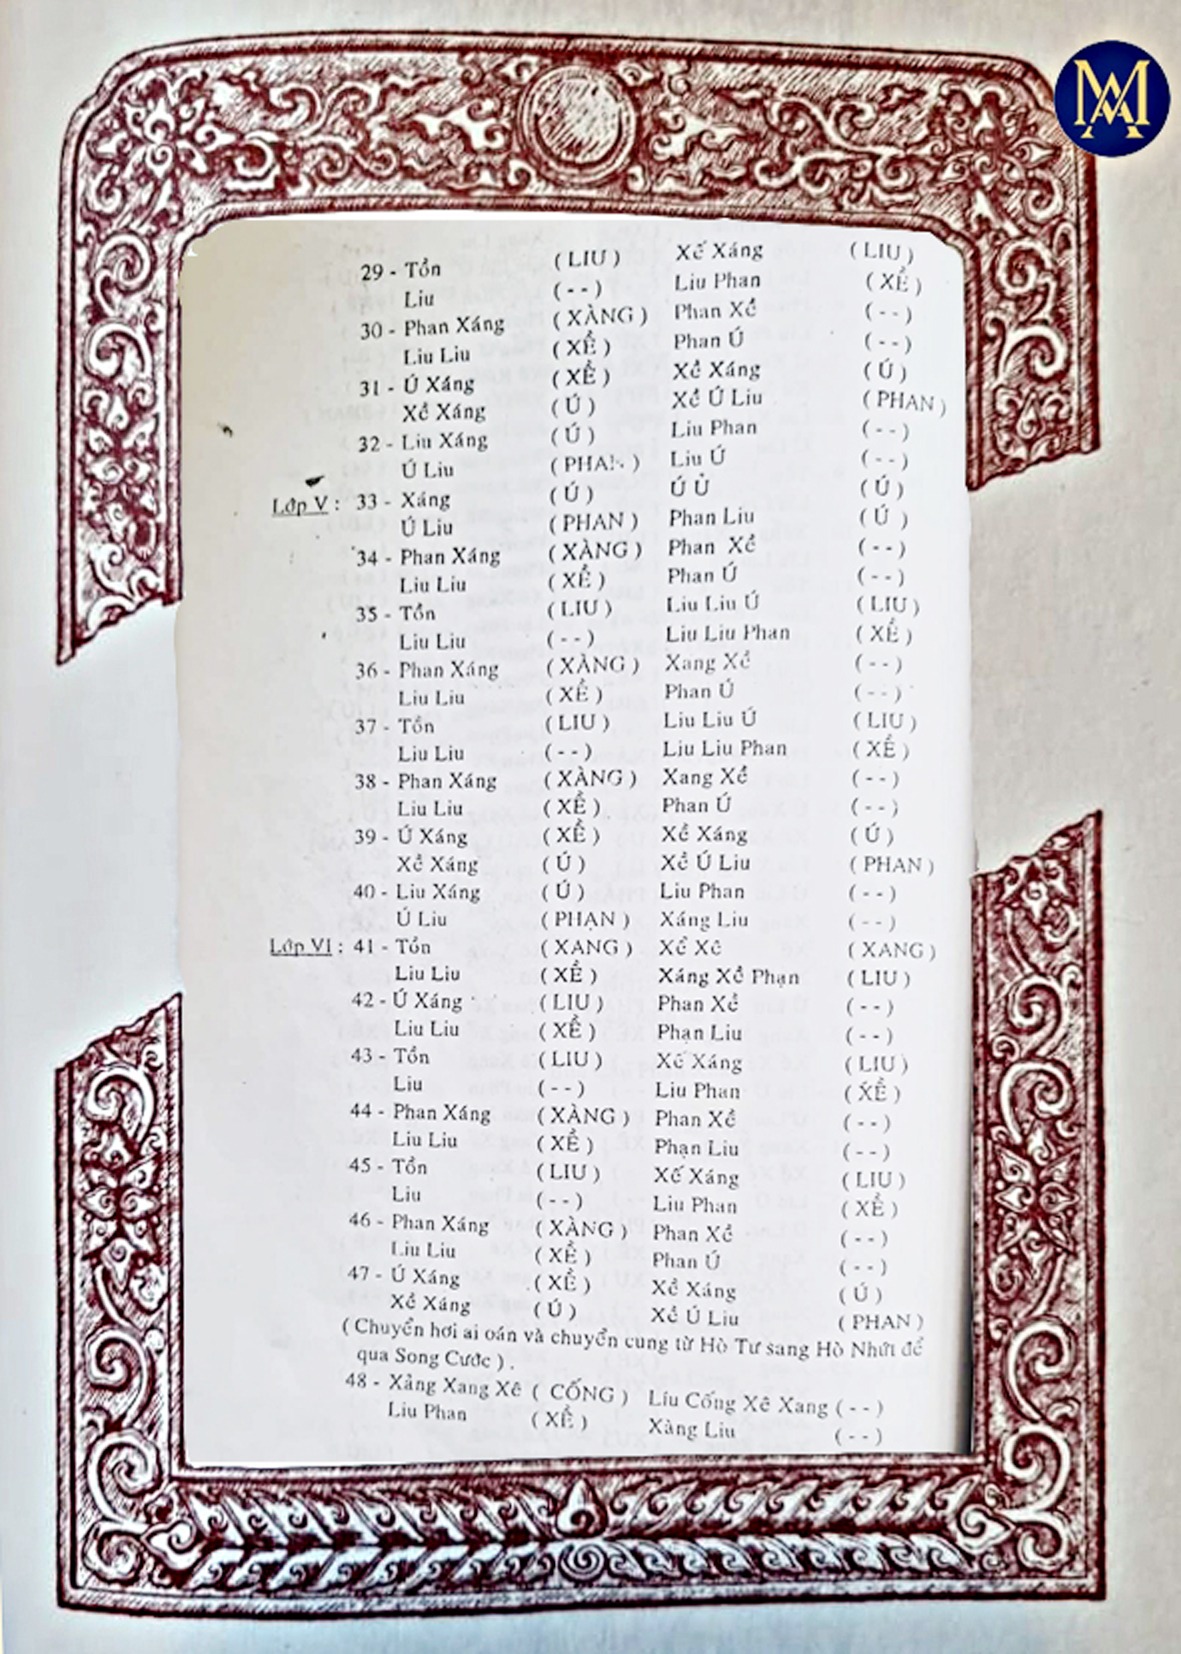 MA
29 - Tồn (LIU) Xế Xáng (LIU)
Liu (- -) Liu Phan (XỀ)
30 - Phan Xáng (XÀNG) Phan Xề (- -)
Liu Liu (XỀ) Phan Ú (- -)
31 - Ú Xáng (XỀ) Xề Xáng (Ú)
Xề Xáng (Ú) Xề Ú Liu (PHAN)
32 - Liu Xáng (Ú) Liu Phan (- -)
Ú Liu (PHAN) Liu Ú (- -)
Lớp V : 33 - Xáng (Ú) Ú Ủ (Ú)
Ú Liu (PHAN) Phan Liu (Ú)
34 - Phan Xáng (XÀNG) Phan Xề (- -)
Liu Liu (XỀ) Phan Ú (- -)
35 - Tồn (LIU) Liu Liu Ú (LIU)
Liu Liu (- -) Liu Liu Phan (XỀ)
36 - Phan Xáng (XÀNG) Xang Xề (- -)
Liu Liu (XỀ) Phan Ú (- -)
37 - Tồn (LIU) Liu Liu Ú (LIU)
Liu Liu (- -) Liu Liu Phan (XỀ)
38 - Phan Xáng (XÀNG) Xang Xề (- -)
Liu Liu (XỀ) Phan Ú (- -)
39 - Ú Xáng (XỀ) Xề Xáng (Ú)
Xề Xáng (Ú) Xề Ú Liu (PHAN)
40 - Liu Xáng (Ú) Liu Phan (- -)
Ú Liu (PHẠN) Xáng Liu (- -)
Lớp VI : 41 - Tồn (XANG) Xể Xê (XANG)
Liu Liu (XỀ) Xáng Xề Phạn (LIU)
42 - Ú Xáng (LIU) Phan Xề (- -)
Liu Liu (XỀ) Phạn Liu (- -)
43 - Tồn (LIU) Xế Xáng (LIU)
Liu (- -) Liu Phan (XỀ)
44 - Phan Xáng (XÀNG) Phan Xề (- -)
Liu Liu (XỀ) Phạn Liu (- -)
45 - Tồn (LIU) Xế Xáng (LIU)
Liu (- -) Liu Phan (XỀ)
46 - Phan Xáng (XÀNG) Phan Xề (- -)
Liu Liu (XỀ) Phan Ú (- -)
47 - Ú Xáng (XỀ) Xề Xáng (Ú)
Xề Xáng (Ú) Xề Ú Liu (PHAN)
(Chuyển hơi ai oán và chuyển cung từ Hò Tư sang Hò Nhứt để
qua Song Cước).
48 - Xảng Xang Xê (CỐNG) Líu Cống Xê Xang (- -)
Liu Phan (XỀ) Xàng Liu (- -)